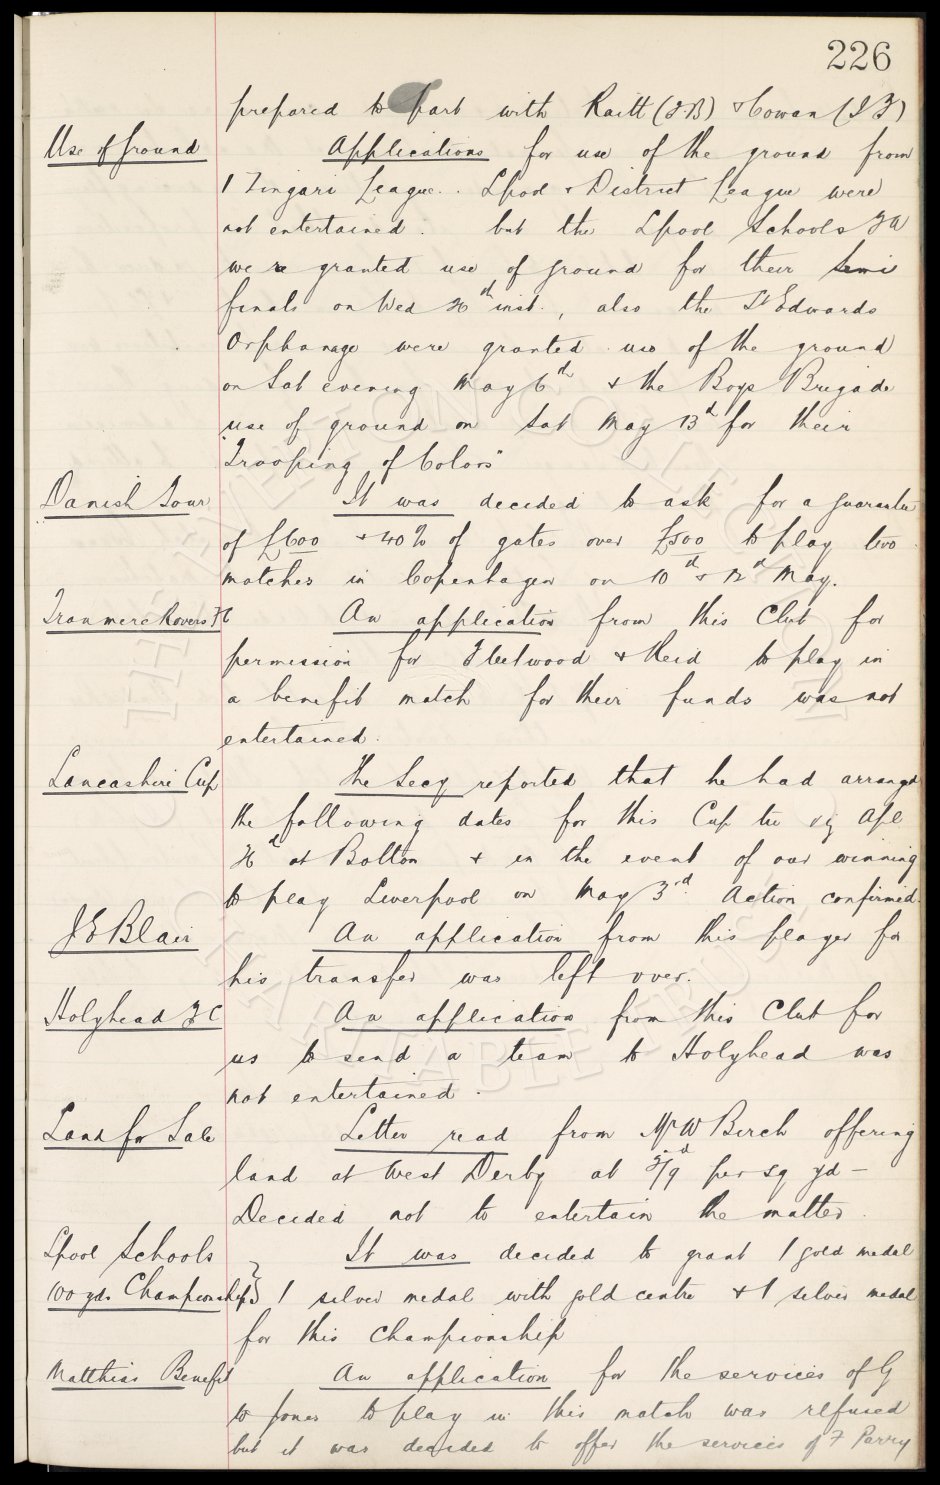 226
prepared to part with Raitt (J.B) & Cowan (J F)
Use of Ground
Applications for use of the ground from
I Zingari League. Lpool & District League were
not entertained. but the Lpool Schools F A
were granted use of ground for their Semi
finals on Wed 26th inst., also the St Edwards
Orphanage were granted use of the ground
on Sat evening May 6th & the Boys Brigade
use of ground on Sat May 13th for their
"Trooping of Colors"
Danish Tour
It was decided to ask for a guarantee
of £600 & 40% of gates over £500 to play two
matches in Copenhagen on 10th & 12th May.
Tranmere Rovers FC
An application from this Club for
permission for Fleetwood & Reid to play in
a benefit match for their funds was not
entertained.
Lancashire Cup
The Secy reported that he had arranged
the following dates for this Cup tie viz Apl
26th at Bolton & in the event of our winning
to play Liverpool on May 3rd. Action confirmed.
J E Blair
An application from this player for
his transfer was left over.
Holyhead F C
An application from this Club for
us to send a team to Holyhead was
not entertained.
Land for Sale
Letter read from Mr W Birch offering
land at West Derby at 5/9d per sq yd —
Decided not to entertain the matter.
Lpool Schools
100 yds. Championships
It was decided to grant 1 gold medal
1 silver medal with gold centre & 1 silver medal
for this Championship
Matthias Benefit
An application for the services of G
to Jones to play in this match was refused
but it was decided to offer the services of F Parry
THE EVERTON COLLECTION
CHARITABLE TRUST